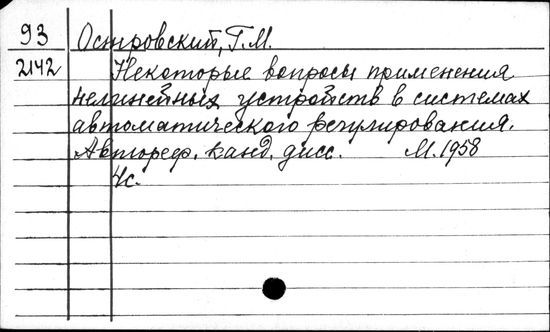 93 Островский, Г.М.
2142 Некоторые вопросы применения
нелинейных устройств в системах
автоматического регулирования.
Автореф. канд. дисс. М. 1958
4с.